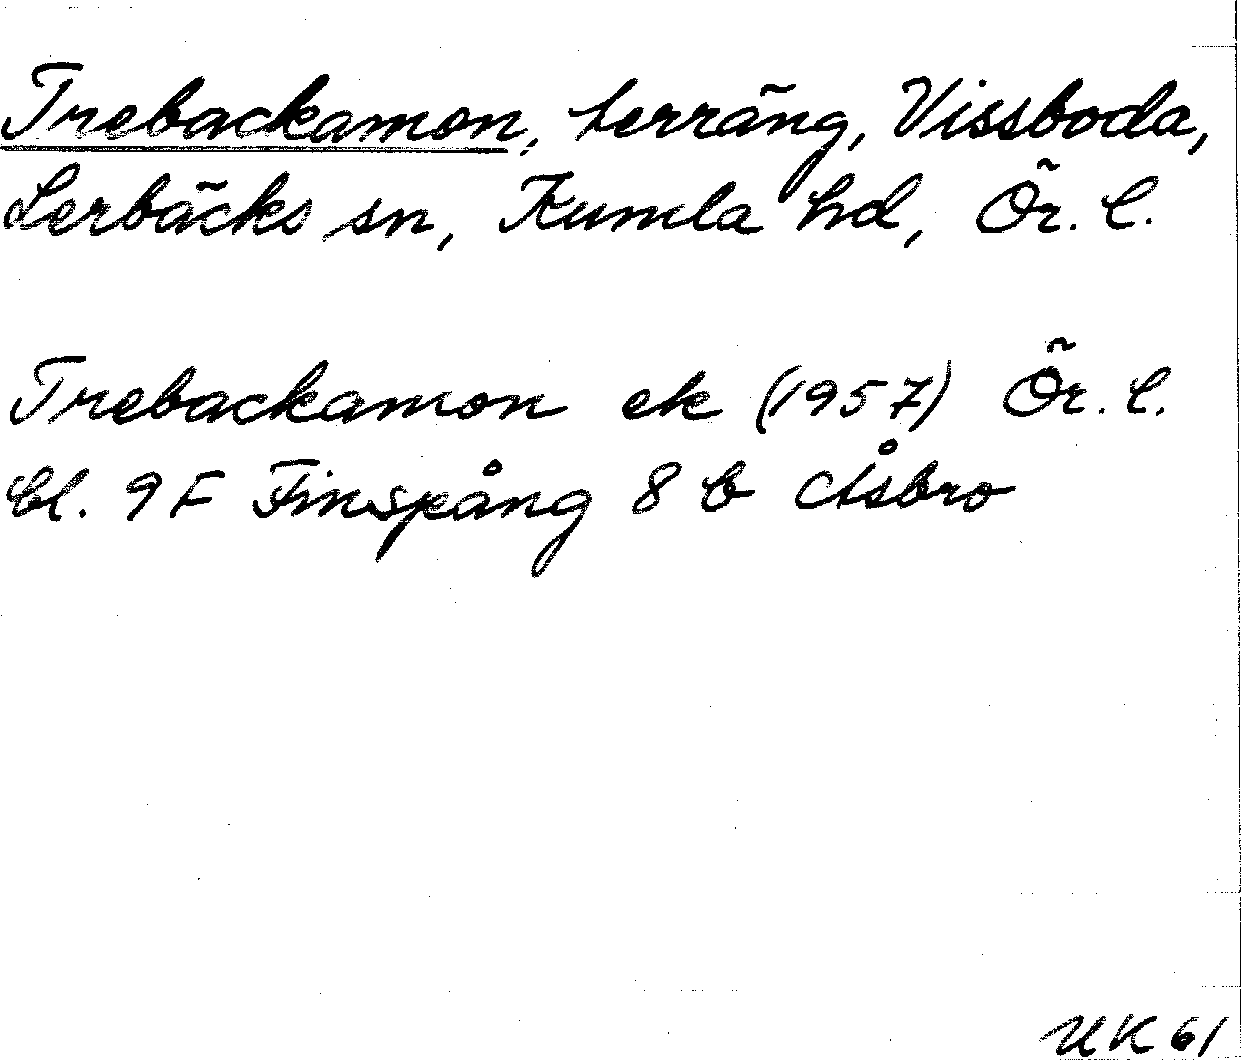 Trebackamon, terräng, Vissboda,
Lerbäcks sn, Kumla hd, Ör. l.
Trebackamon ek (1957) Ör. l.
bl. 9 F Finspång 8 b Åsbro
UK 61